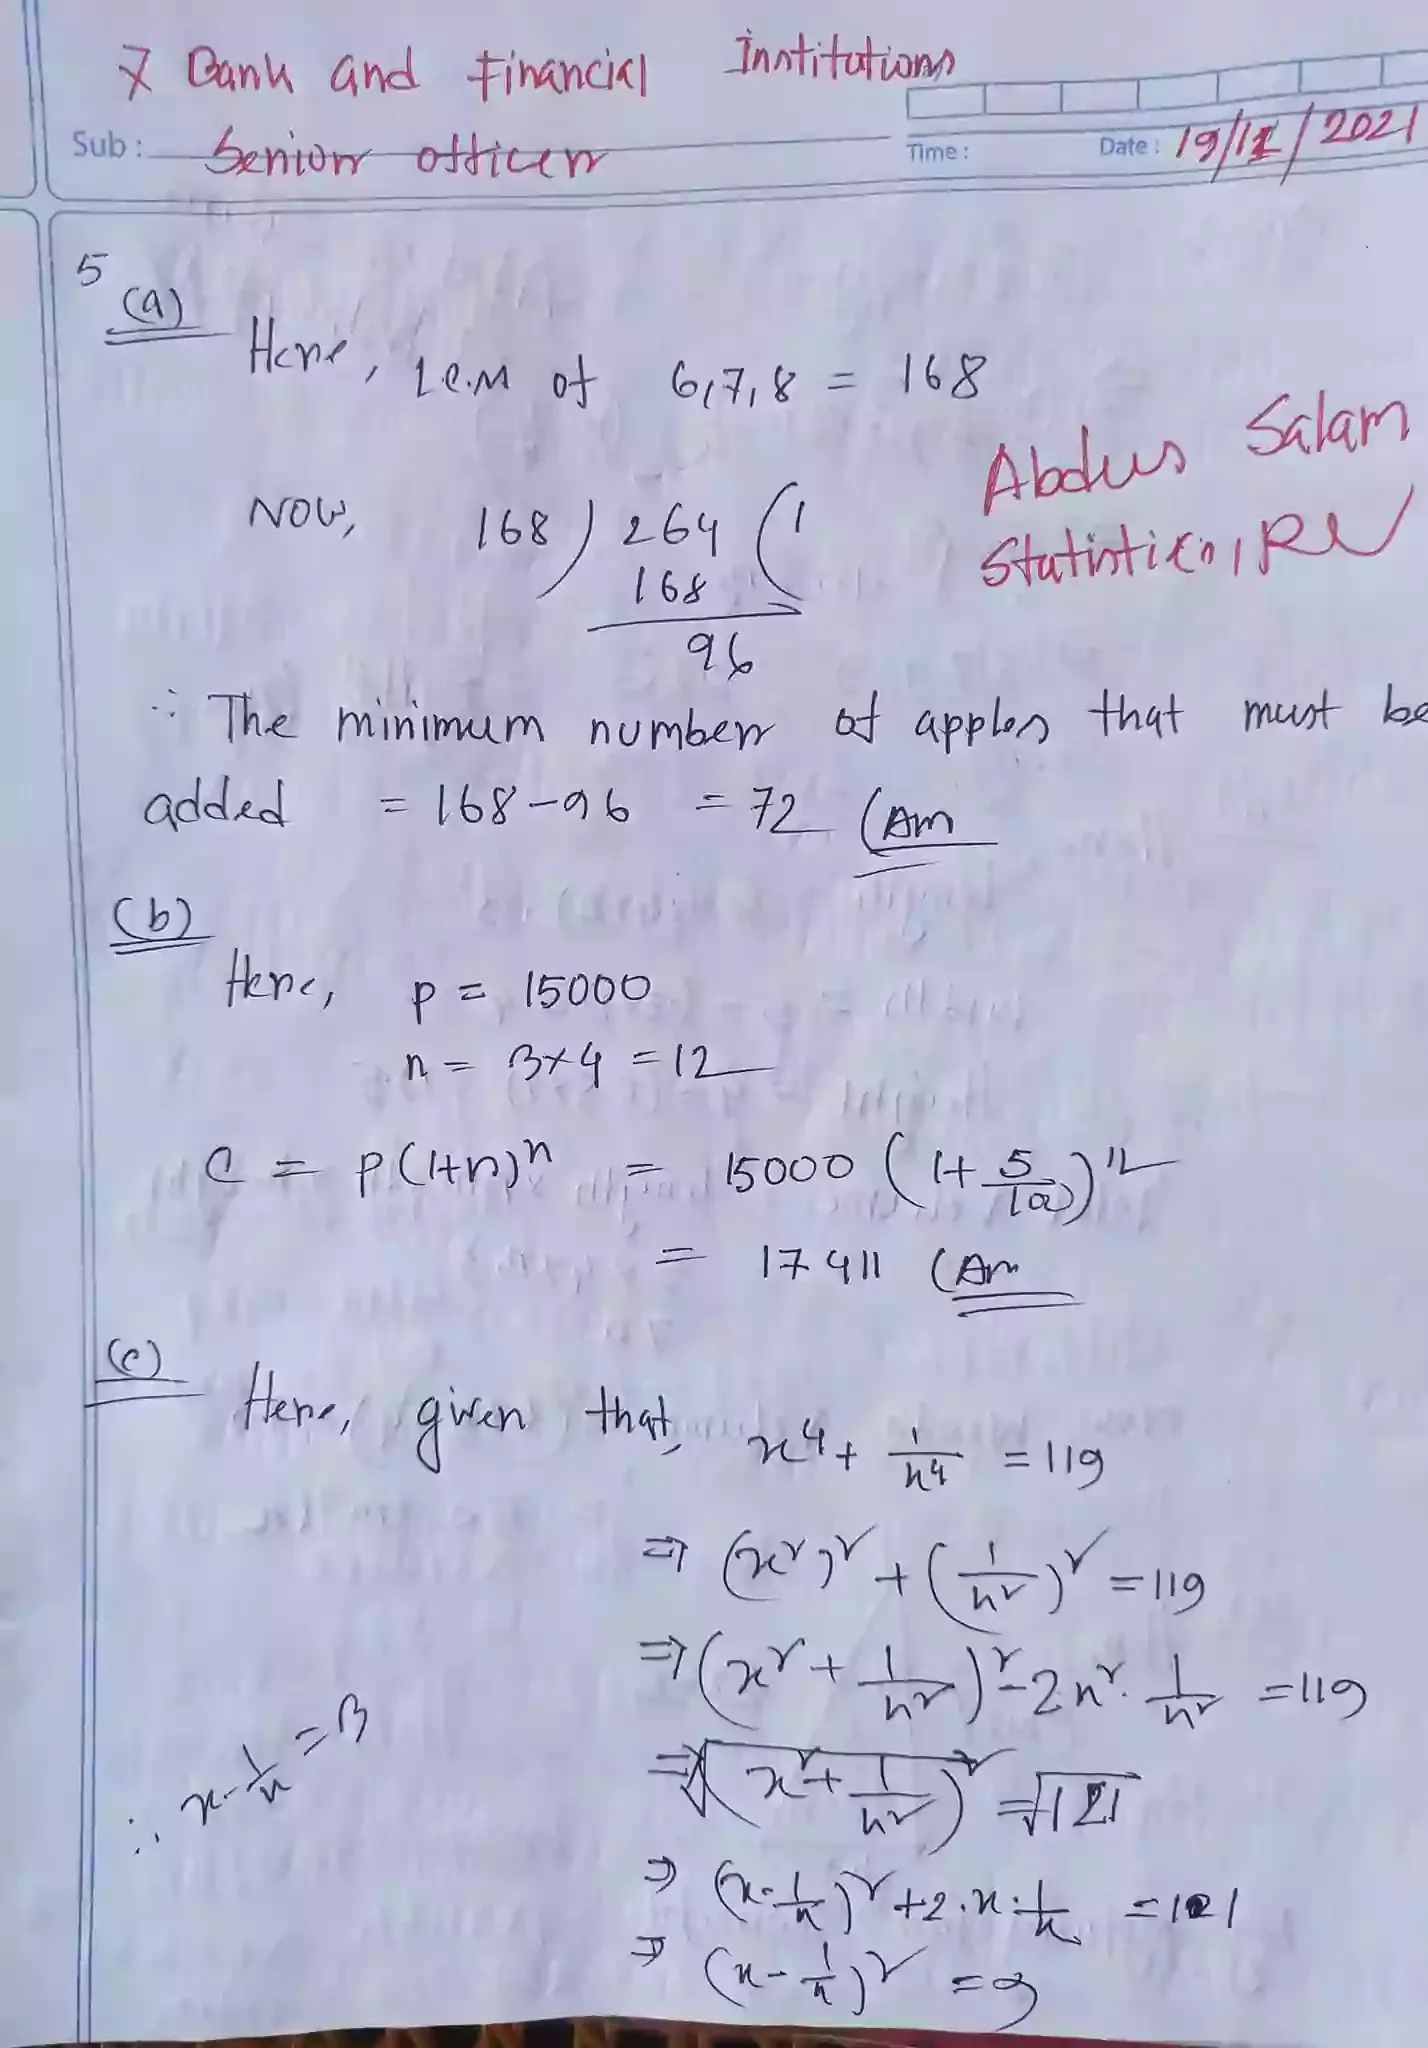 7 Bank and Financial Institutions
Sub: Senior officer
Time: Date: 19/11/2021
5
(a)
Here, L.C.M of 6,7,8 = 168
Abdus Salam
Statistics, RU
Now, 168 ) 264 ( 1
168
96
∴ The minimum number of apples that must be
added = 168-96 = 72 (Ans
(b)
Here, p = 15000
n = 3×4 = 12
C = P(1+r)ⁿ = 15000 (1+ 5/100)¹²
= 17411 (Ans
(c)
Here, given that, x⁴ + 1/x⁴ = 119
⇒ (x²)² + (1/x²)² = 119
⇒ (x² + 1/x²)² - 2x² · 1/x² = 119
⇒ √(x² + 1/x²)² = √121
⇒ (x - 1/x)² + 2·x·1/x = 121
⇒ (x - 1/x)² = 9
∴ x - 1/x = 3